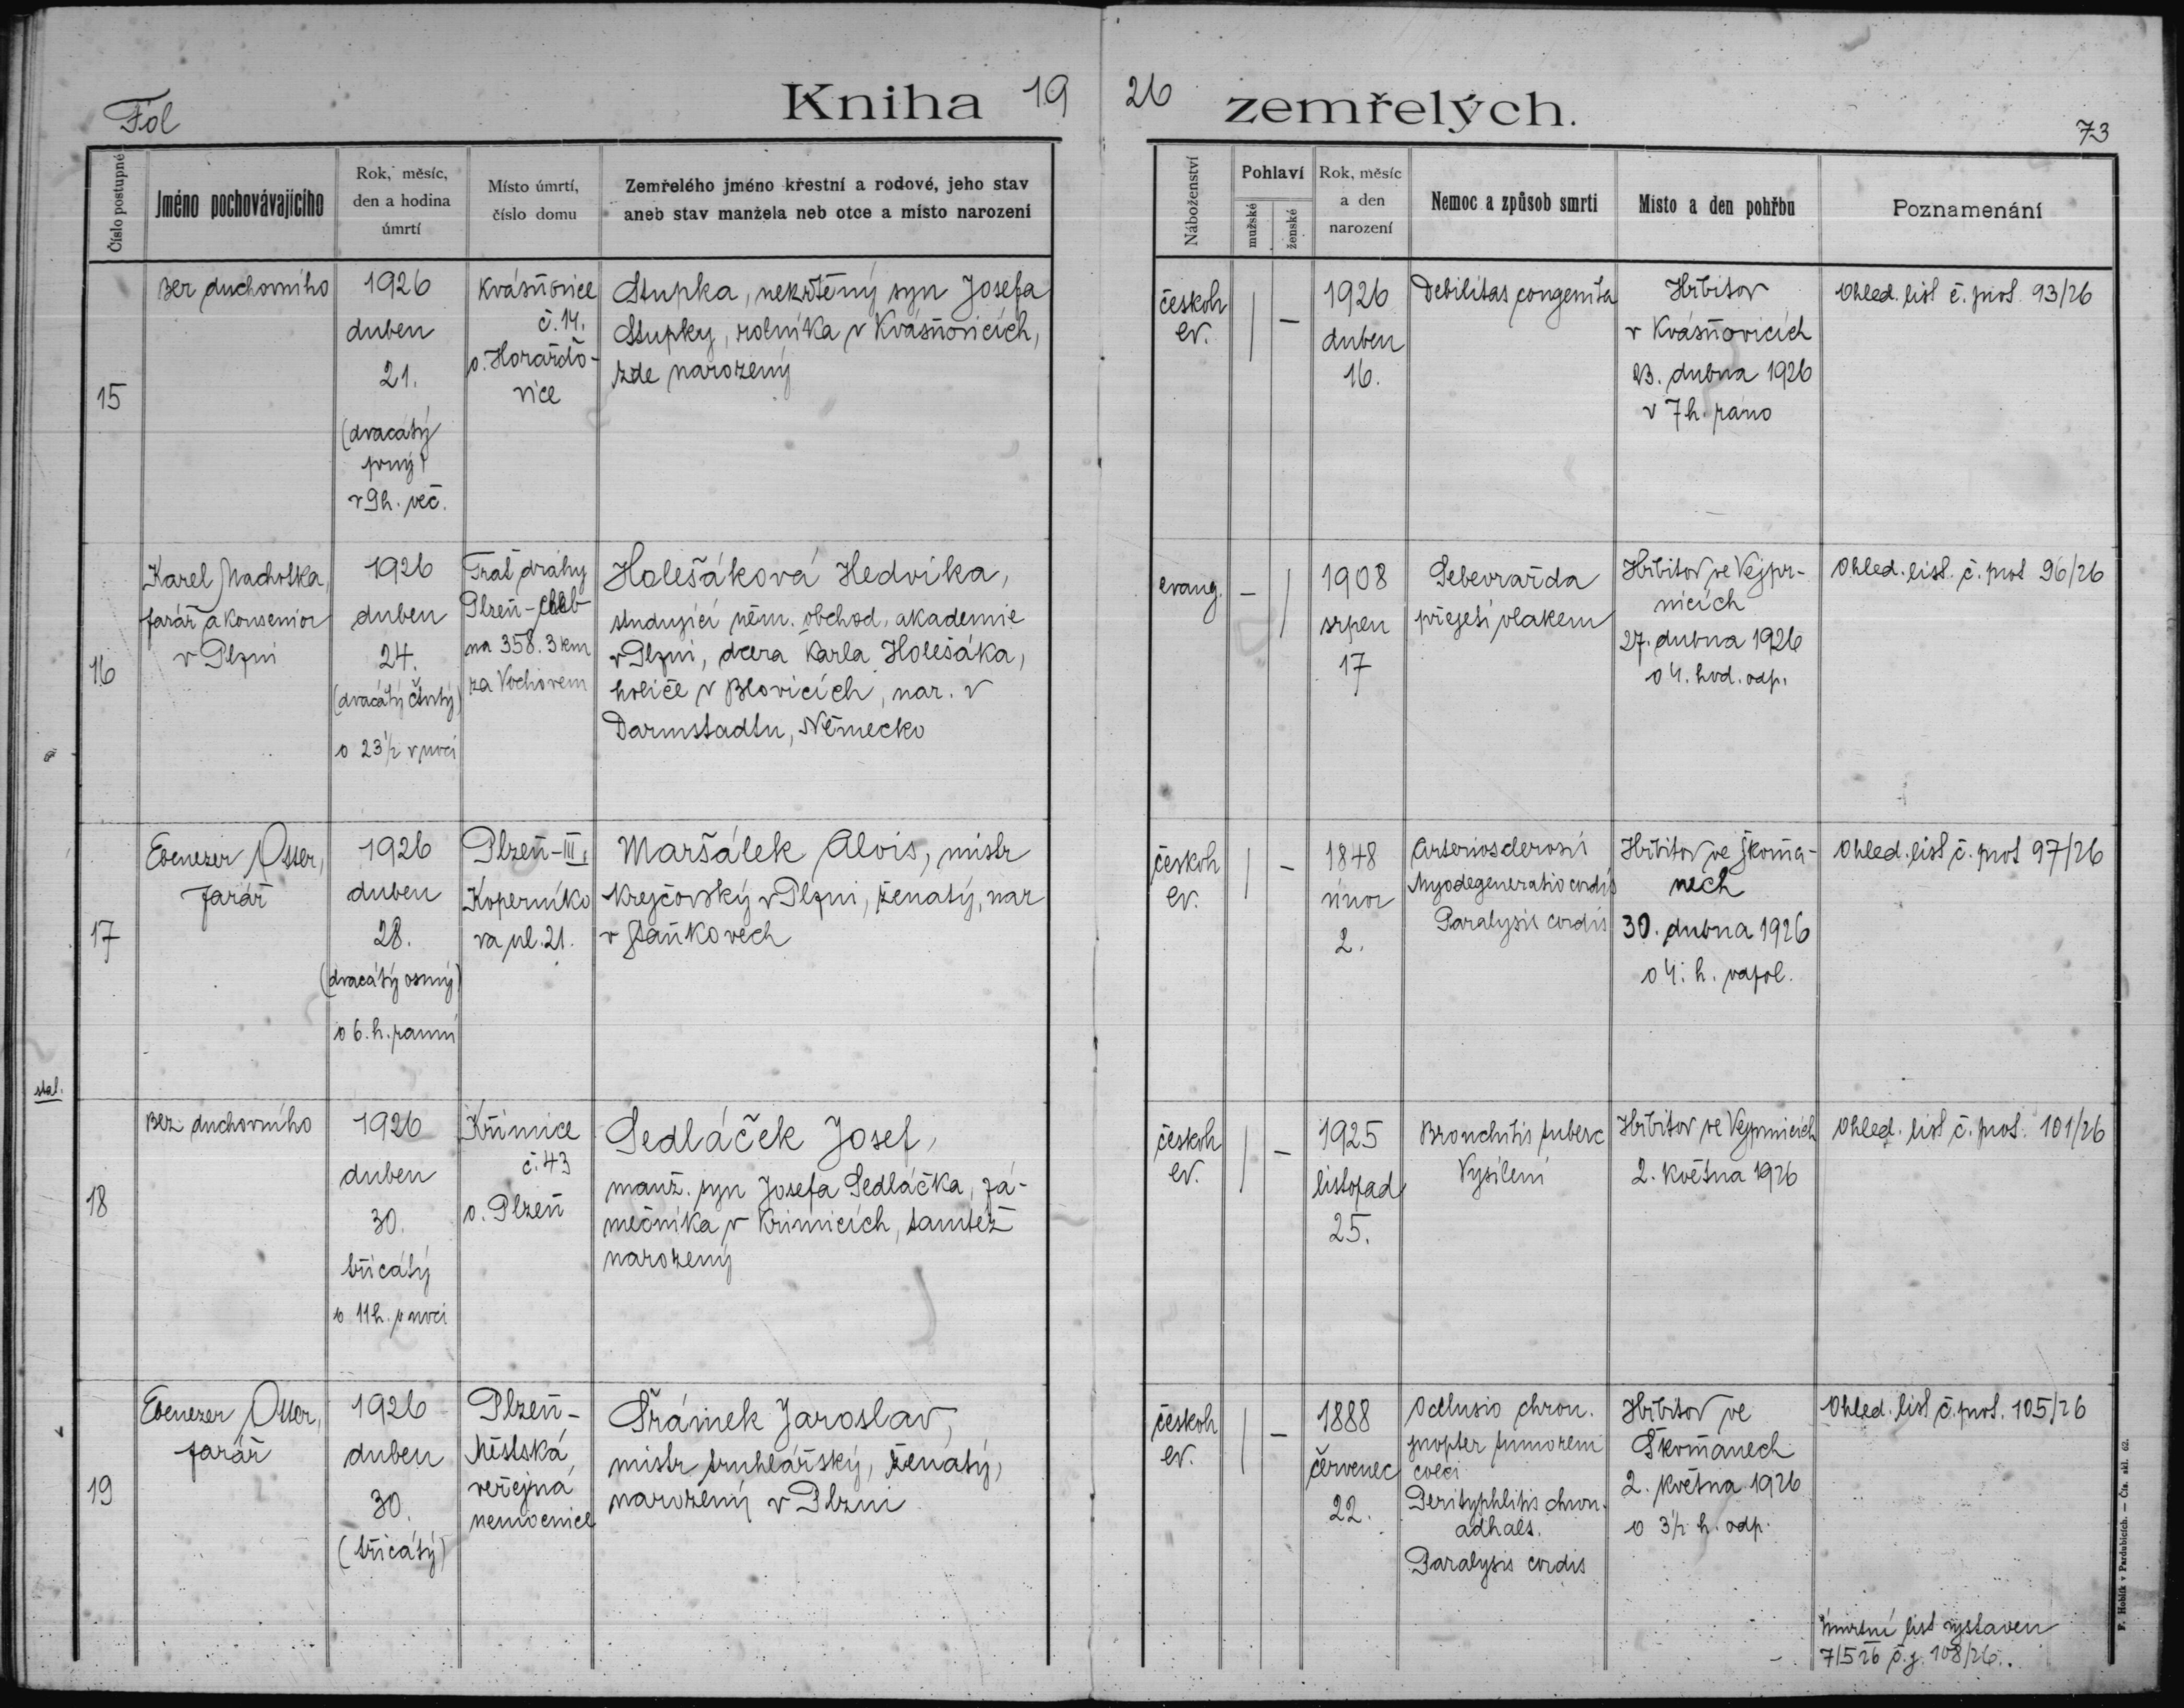 Fol
Kniha 19 26 zemřelých.
73
Číslo postupné
Jméno pochovávajícího
Rok, měsíc,
den a hodina
úmrtí
Místo úmrtí,
číslo domu
Zemřelého jméno křestní a rodové, jeho stav
aneb stav manžela neb otce a místo narození
Náboženství
Pohlaví
mužské
ženské
Rok, měsíc
a den
narození
Nemoc a způsob smrti
Místo a den pohřbu
Poznamenání
15
Bez duchovního
1926
duben
21.
(dvacátý
prvý)
v 9h. več.
Kvásňovice
č. 14.
o. Horažďo-
vice
Stupka, nekřtěný syn Josefa
Stupky, rolníka v Kvásňovicích,
zde narozený
českob
ev.
|
–
1926
duben
16.
Debilitas congenita
Hřbitov
v Kvásňovicích
23. dubna 1926
v 7h. ráno
Ohled. list č. prot. 93/26
16
Karel Nachotka,
farář a konsenior
v Plzni
1926
duben
24.
(dvacátý čtvrtý)
o 23½ v noci
Trať dráhy
Plzeň-Cheb
na 358.3 km
za Vochovem
Holešáková Hedvika,
studující něm. obchod. akademie
v Plzni, dcera Karla Holešáka,
holiče v Blovicích, nar. v
Darmstadtu, Německo
evang.
–
|
1908
srpen
17
Sebevražda
přejetí vlakem
Hřbitov ve Vejpr-
nicích
27. dubna 1926
o 4. hod. odp.
Ohled. list. č. prot 96/26
17
Ebenezer Otter,
farář
1926
duben
28.
(dvacátý osmý)
o 6. h. ranní
Plzeň-III,
Koperníko
va ul. 21.
Maršálek Alois, mistr
krejčovský v Plzni, ženatý, nar
v Staňkovech
českob
ev.
|
–
1848
únor
2.
Arteriosclerosis
Myodegeneratio cordis
Paralysis cordis
Hřbitov ve Škvrňa-
nech
30. dubna 1926
o 4. h. odpol.
Ohled. list č. prot 97/26
stal.
18
Bez duchovního
1926
duben
30.
třicátý
o 11h. v noci
Křimice
č. 43
o. Plzeň
Sedláček Josef,
manž. syn Josefa Sedláčka, zá-
mečníka v Křimicích, tamtéž
narozený
českob
ev.
|
–
1925
listopad
25.
Bronchitis tuberc
Vysílení
Hřbitov ve Vejprnicích
2. května 1926
Ohled. list č. prot. 101/26
19
Ebenezer Otter,
farář
1926
duben
30.
(třicátý)
Plzeň-
Městská
veřejná
nemocnice
Šrámek Jaroslav,
mistr truhlářský, ženatý,
narozený v Plzni
českob
ev.
|
–
1888
červenec
22.
Occlusio chron.
propter tumorem
coeci
Perityphlitis chron.
adhaes.
Paralysis cordis
Hřbitov ve
Škvrňanech
2. května 1926
o 3½ h. odp.
Ohled. list č. prot. 105/26
Úmrtní list vystaven
7/5 26 č.j. 108/26.
F. Hoblík v Pardubicích. — Čís. skl. 62.